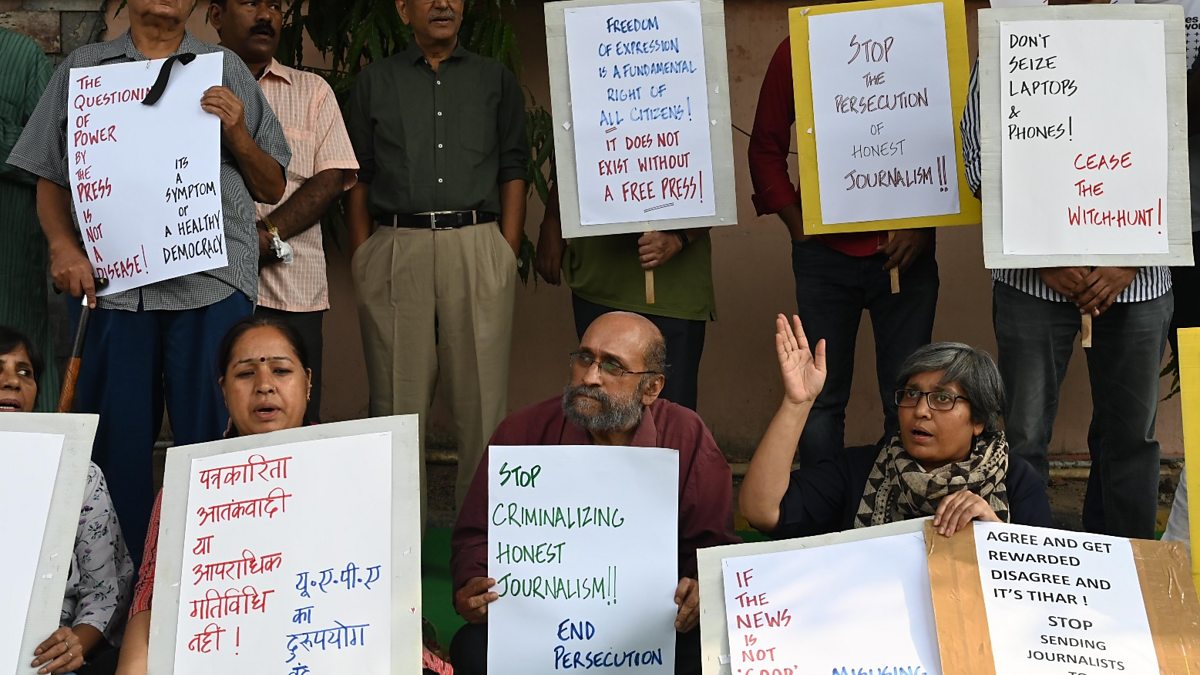 THE
QUESTIONING
OF
POWER
BY
THE
PRESS
IS
NOT
A
DISEASE!
ITS
A
SYMPTOM
OF
A HEALTHY
DEMOCRACY
FREEDOM
OF EXPRESSION
IS A FUNDAMENTAL
RIGHT OF
ALL CITIZENS!
IT DOES NOT
EXIST WITHOUT
A FREE PRESS!
STOP
THE
PERSECUTION
OF
HONEST
JOURNALISM!!
DON'T
SEIZE
LAPTOPS
&
PHONES!
CEASE
THE
WITCH-HUNT!
पत्रकारिता
आतंकवादी
या
आपराधिक
गतिविधि
नहीं !
यू.ए.पी.ए
का
दुरुपयोग
STOP
CRIMINALIZING
HONEST
JOURNALISM!!
END
PERSECUTION
IF
THE
NEWS
IS
NOT
'GOOD'
MISUSING
AGREE AND GET
REWARDED
DISAGREE AND
IT'S TIHAR !
STOP
SENDING
JOURNALISTS
TO